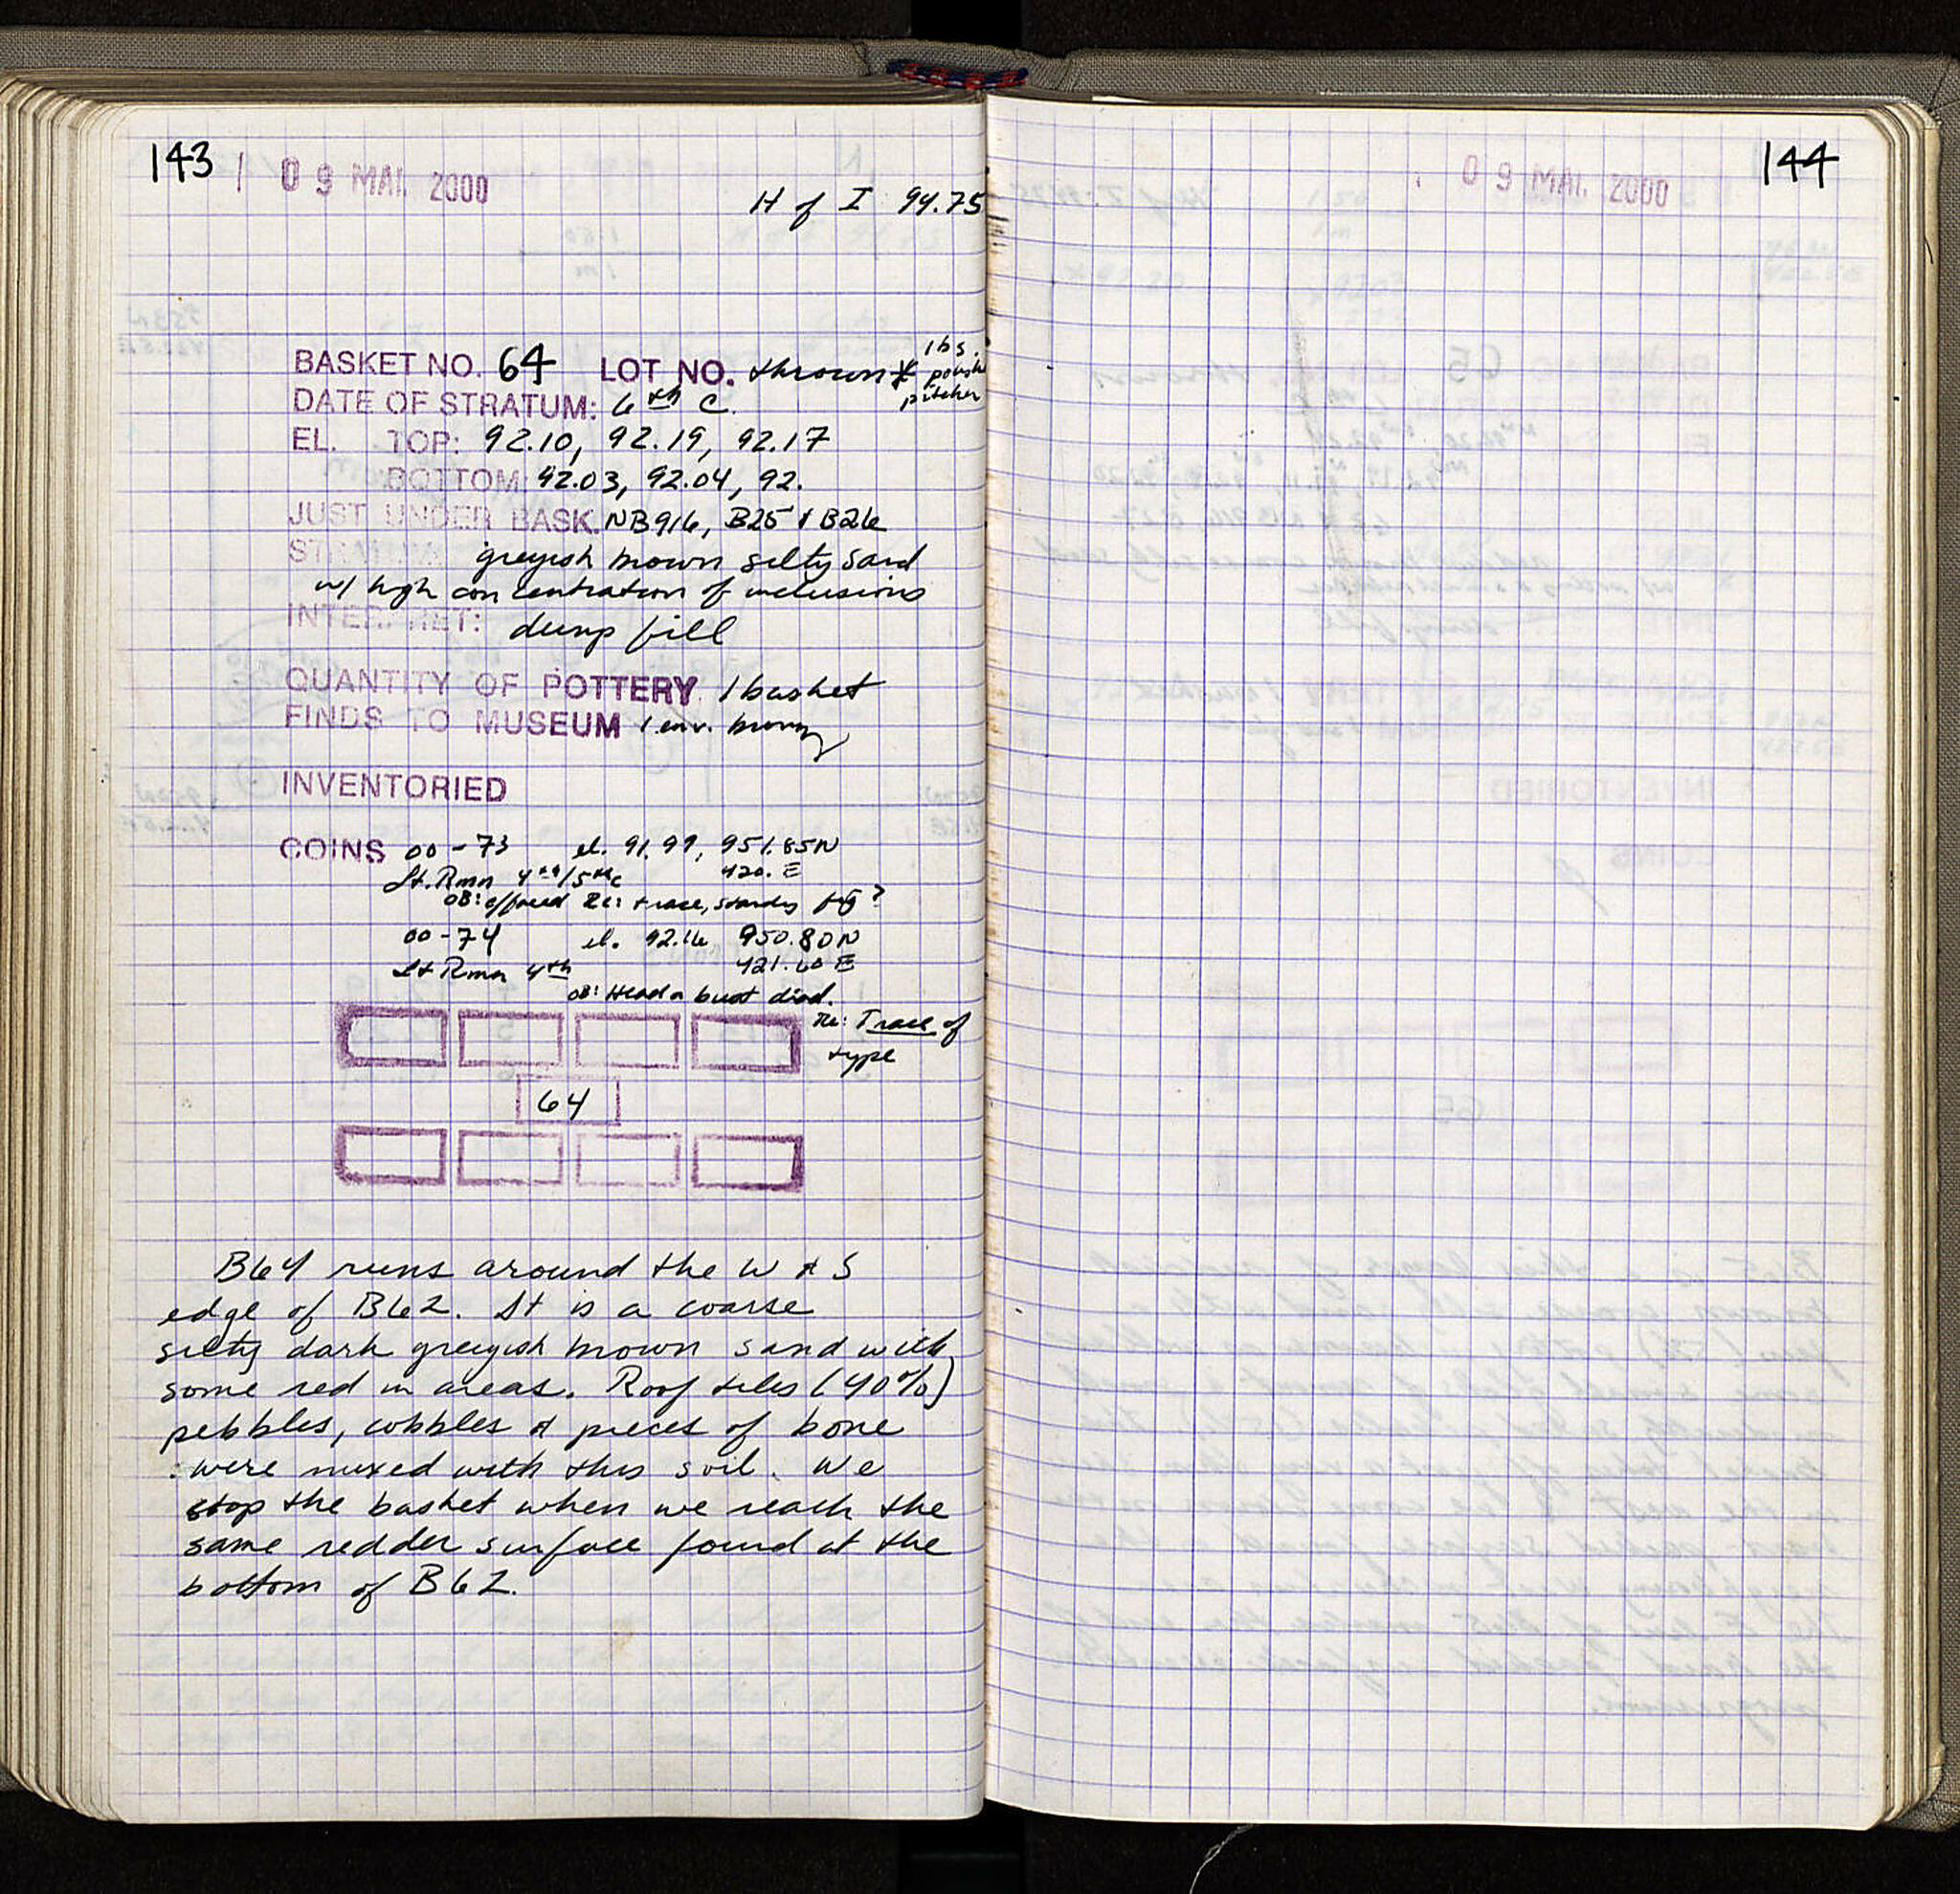 143 09 MAI. 2000
H of I 94.75
BASKET NO. 64 LOT NO. thrown *
pitcher
DATE OF STRATUM: 6th C.
EL. TOP: 92.10, 92.19, 92.17
BOTTOM: 92.03, 92.04, 92.
JUST UNDER BASK. NB916, B25 & B26
STRATUM greyish brown silty sand
w/ high concentration of inclusions
INTERPRET: dump fill
QUANTITY OF POTTERY 1 basket
FINDS TO MUSEUM 1 env.
INVENTORIED
COINS 00-73 el. 91.99, 951.85N
Lt. Rmn 4th/5th c 420. E
OB: effaced Re: trace, standg fig?
00-74 el. 92.16 950.80N
Lt Rmn 4th 421.60 E
OB: Head or bust diad.
Re: Trace of
type
64
B64 runs around the W & S
edge of B62. It is a coarse
silty dark greyish brown sand with
some red in areas. Roof tiles (40%)
pebbles, cobbles & pieces of bone
were mixed with this soil. We
stop the basket when we reach the
same redder surface found at the
bottom of B62.
09 MAI. 2000 144